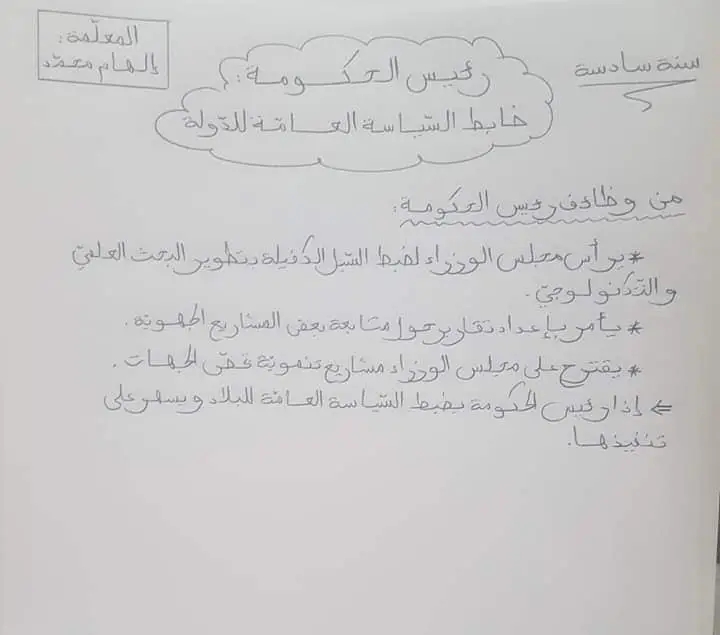 سنة سادسة
المعلّمة:
إلهام محمّد
رئيس الحكومة:
ضابط السّياسة العامّة للدّولة
من وظائف رئيس الحكومة:
* يرأس مجلس الوزراء لضبط السّبل الكفيلة بتطوير البحث العلميّ
والتّكنولوجيّ.
* يأمر بإعداد تقارير حول متابعة بعض المشاريع الجهويّة.
* يقترح على مجلس الوزراء مشاريع تنمويّة تخصّ الجهات.
⇐ إذا رئيس الحكومة يضبط السّياسة العامّة للبلاد ويسهر على
تنفيذها.